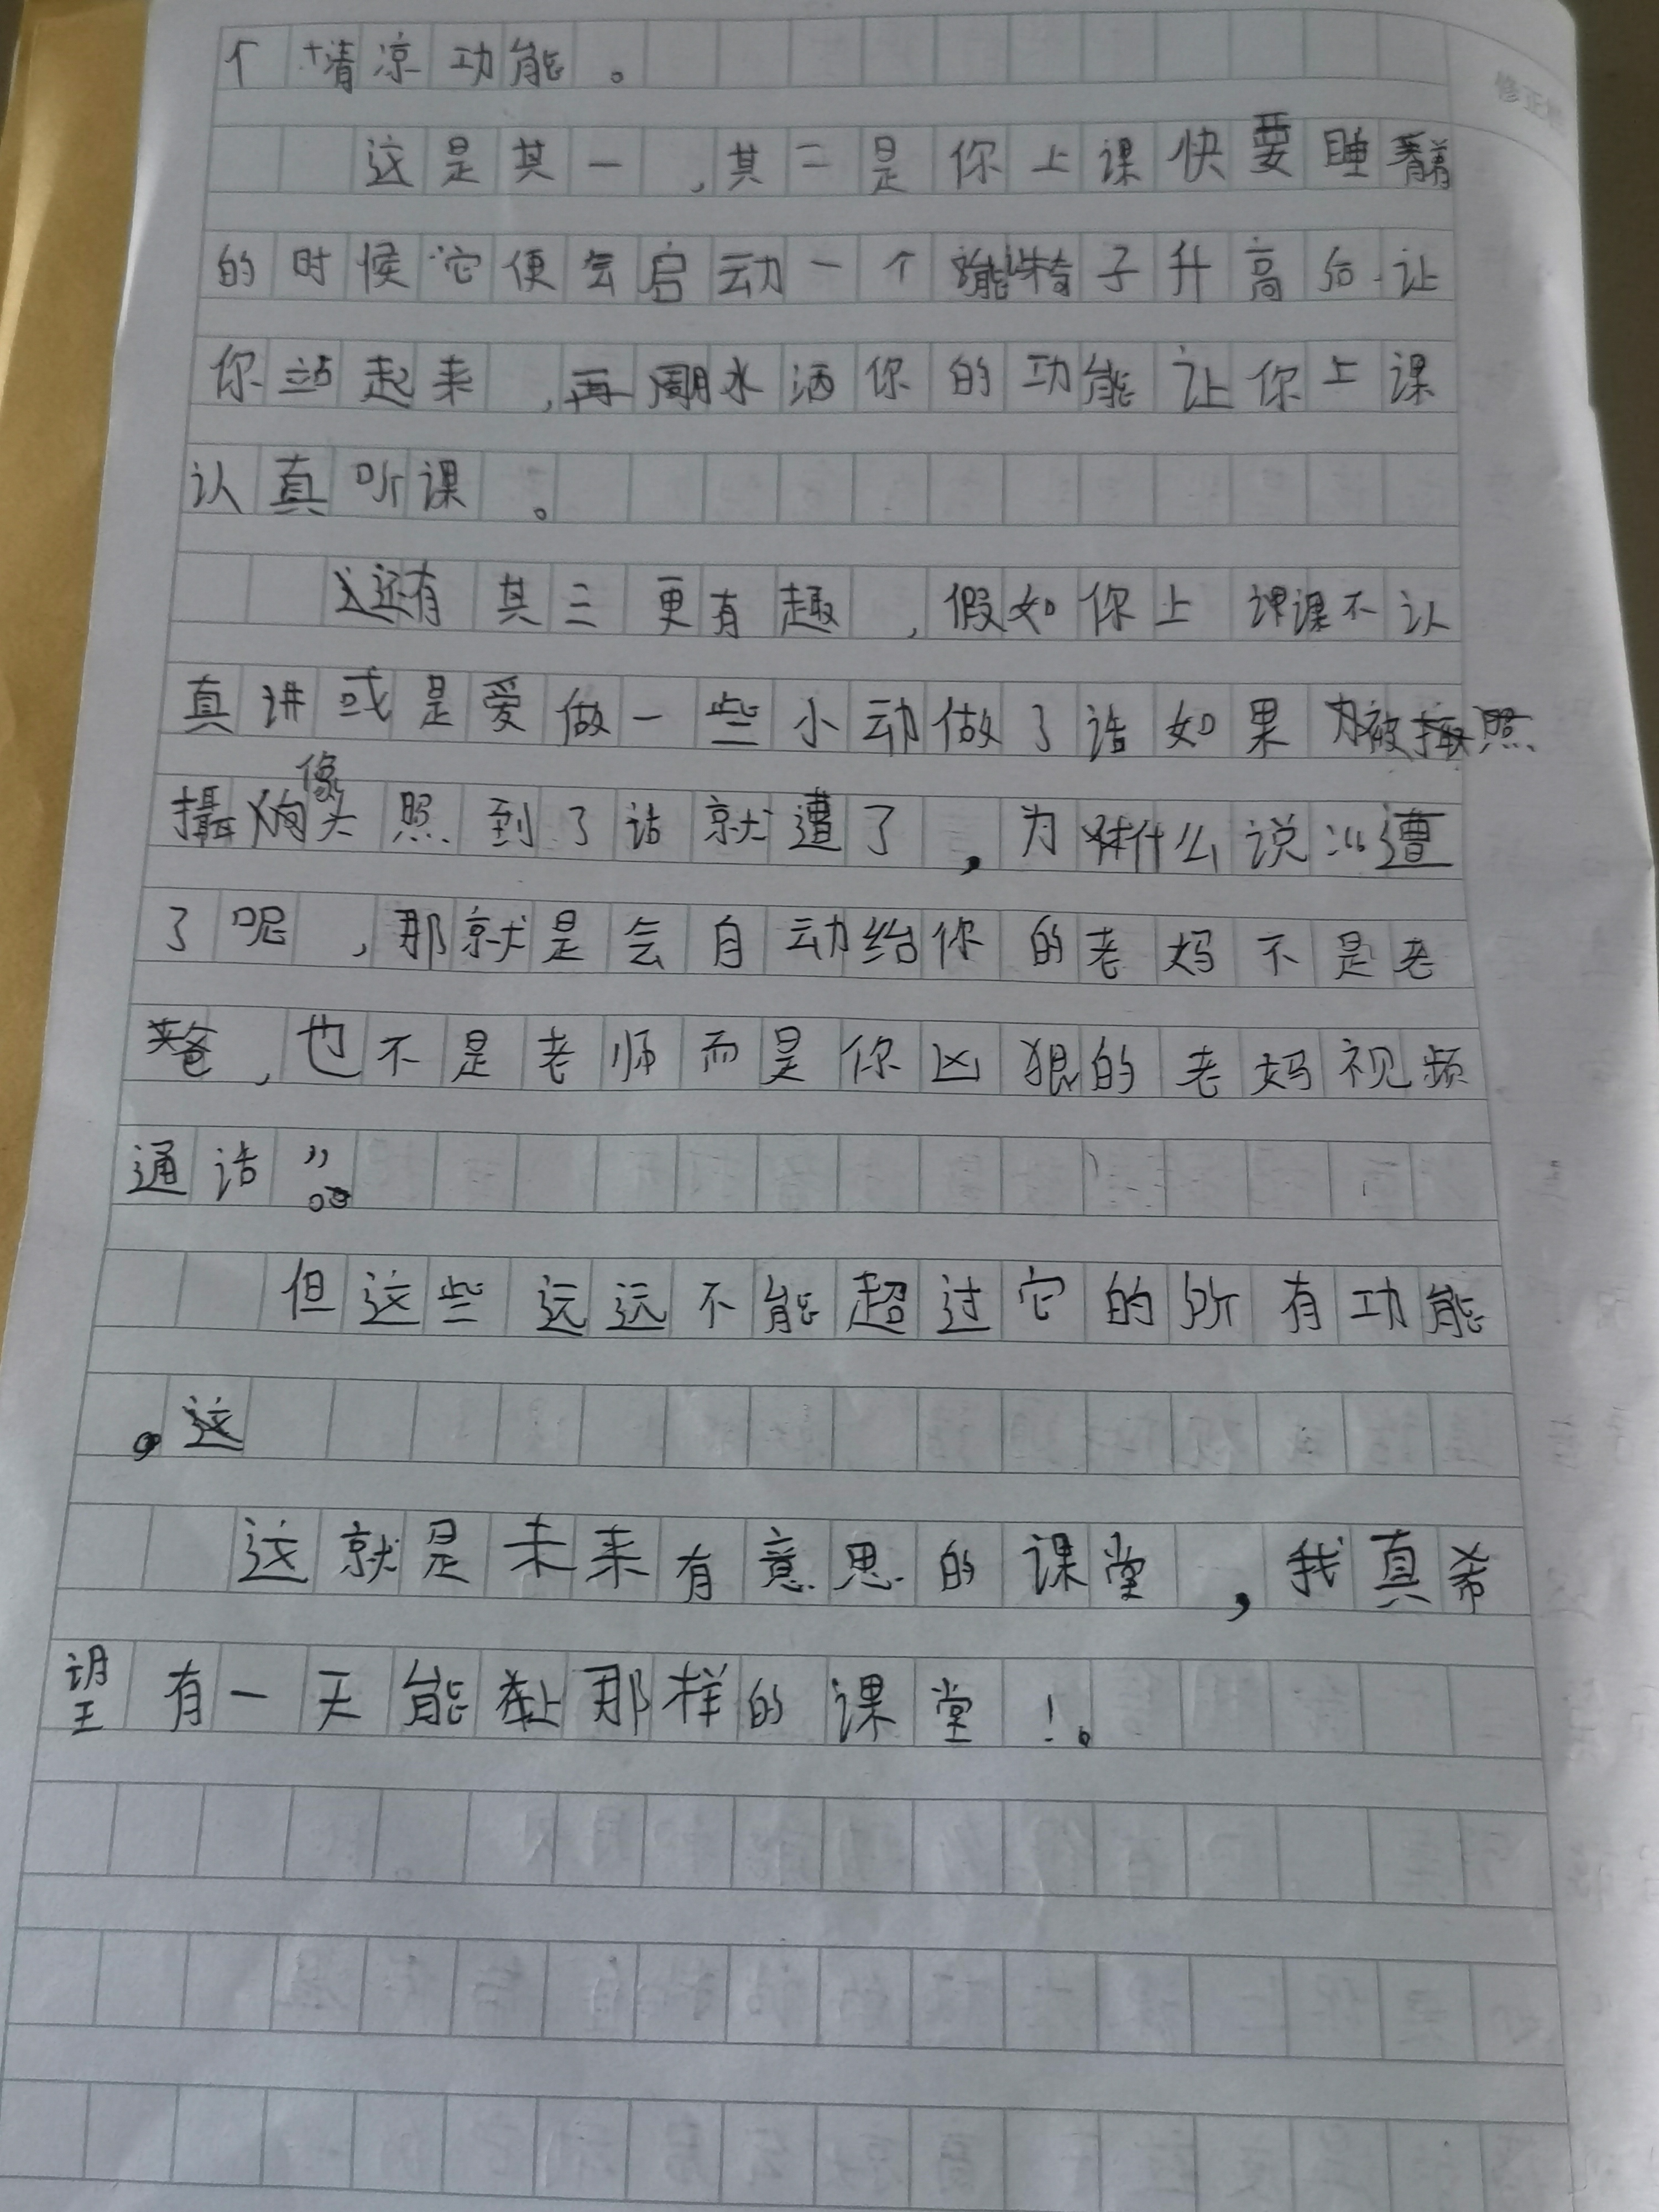 个清凉功能。
这是其一,其二是你上课快要睡着
的时候它便会启动一个能椅子升高后让
你站起来,再用水洒你的功能让你上课
认真听课。
还有其三更有趣,假如你上课不认
真讲或是爱做一些小动做了话如果被
摄像头照到了话就遭了,为什么说遭
了呢,那就是会自动给你的老妈不是老
爸,也不是老师而是你凶狠的老妈视频
通话”。
但这些远远不能超过它的所有功能
。
这就是未来有意思的课堂,我真希
望有一天能上那样的课堂!。